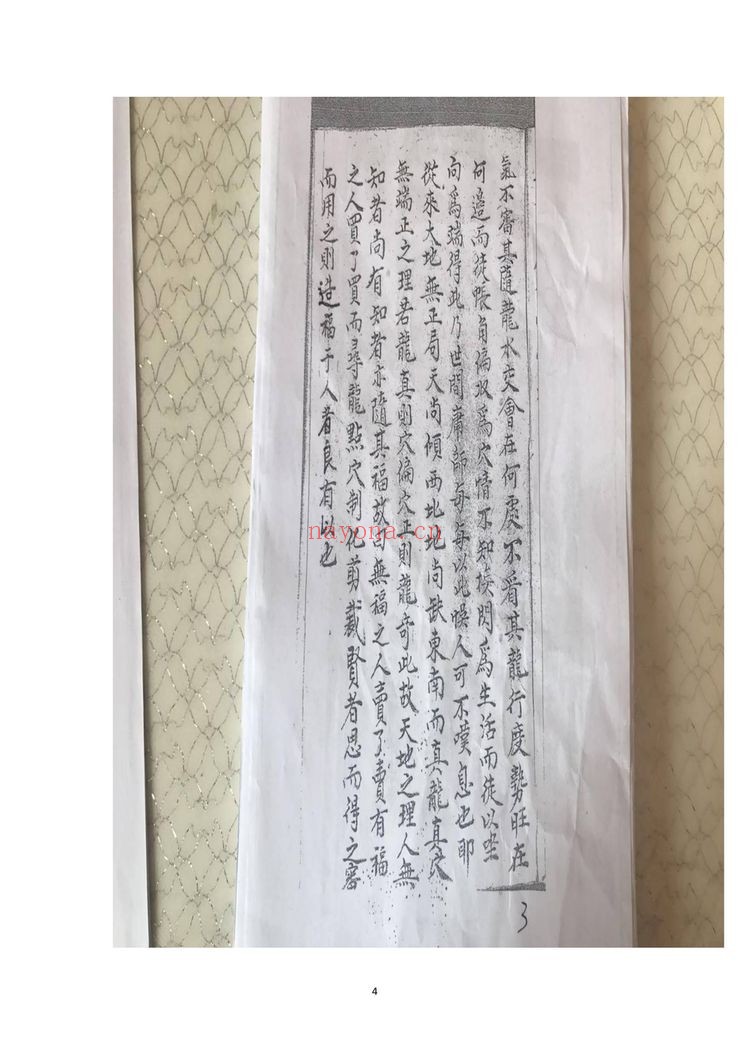 氣不審其隨龍水交會在何處不看其龍行度勢旺在
何邉而徒帳角偏取為穴情不知挨閃為生活而徒以坐
向為端得此乃世間庸師每每以此悞人可不嘆息也耶
從來大地無正局天尚傾西北地尚缺東南而真龍真穴
無端正之理若龍真則穴偏穴正則龍奇此故天地之理人無
知者尚有知者亦隨其福故曰無福之人賣了賣有福
之人買了買而尋龍點穴制化剪裁賢者思而得之
而用之則造福于人者良有以也
3
nayona.cn
4